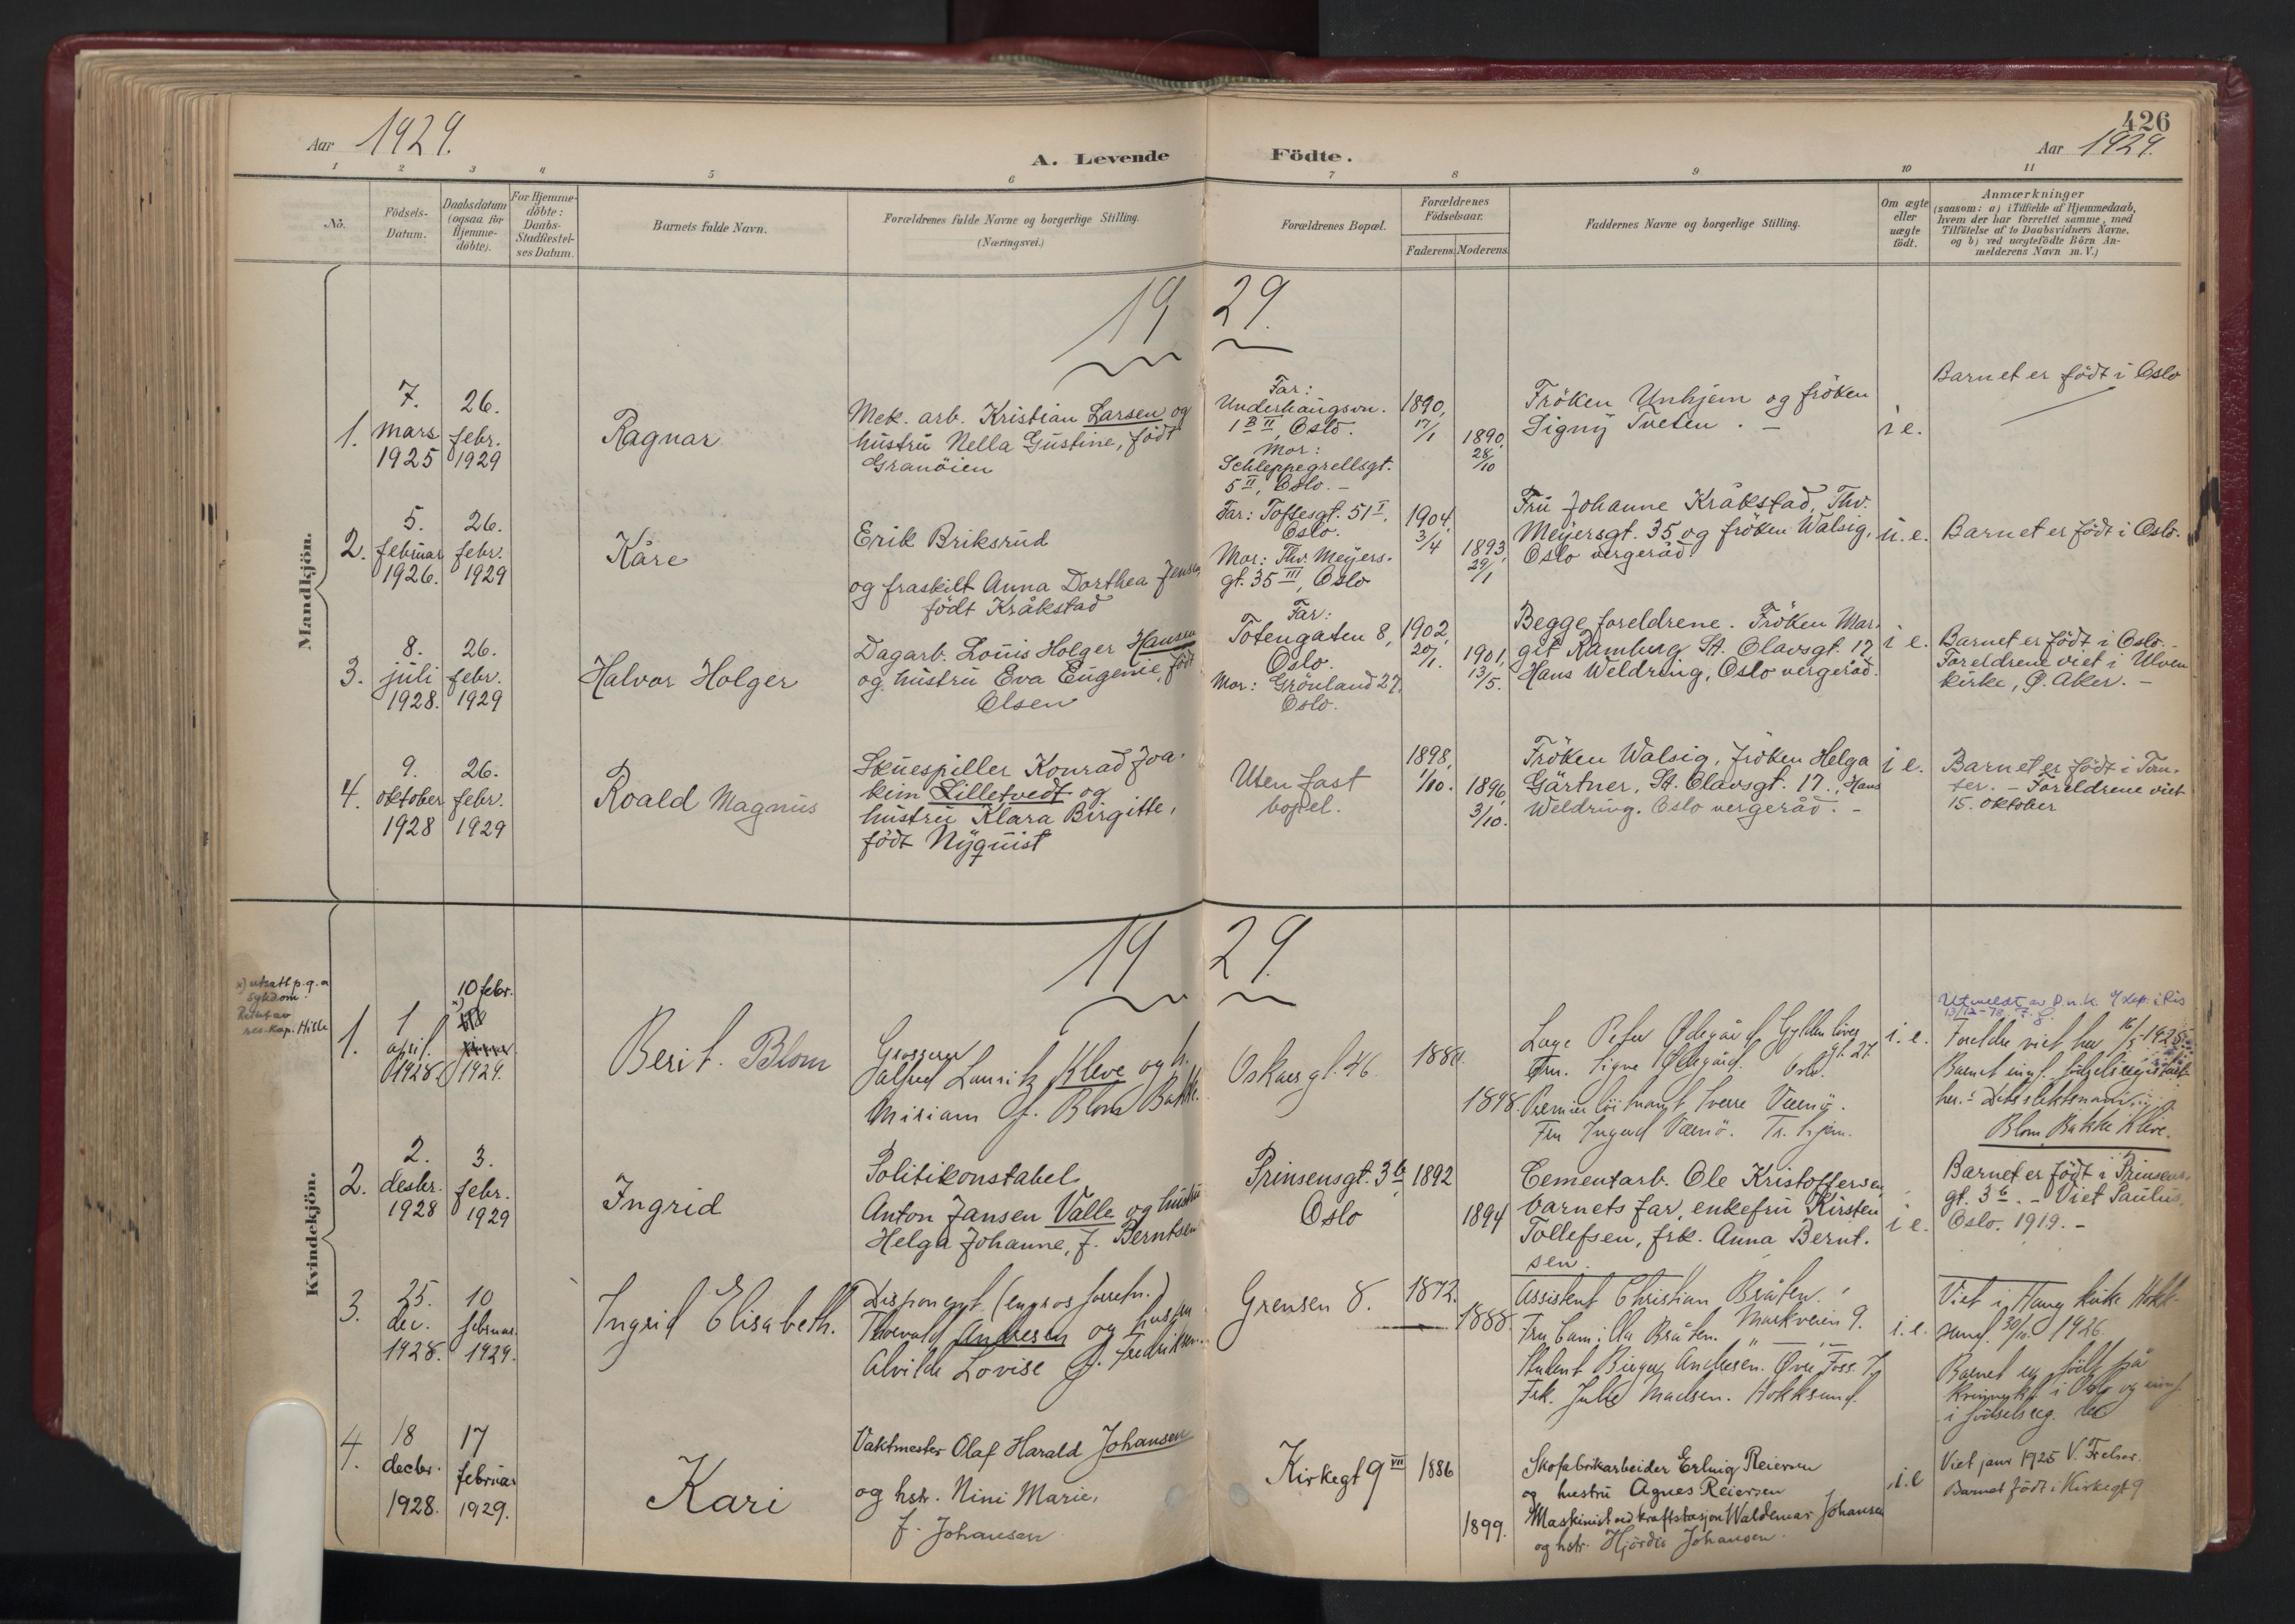 426
Aar 1929.
A. Levende Födte.
Aar 1929.
1 2 3 4 5 6 7 8 9 10 11
No.
Födsels-
Datum.
Daabsdatum
(ogsaa for
Hjemme-
döbte).
For Hjemme-
döbte:
Daabs-
Stadfæstel-
ses Datum.
Barnets fulde Navn.
Forældrenes fulde Navne og borgerlige Stilling.
(Næringsvei.)
Forældrenes Bopæl.
Forældrenes
Födselsaar.
Faderens. Moderens.
Faddernes Navne og borgerlige Stilling.
Om ægte
eller
uægte
födt.
Anmærkninger
(saasom: a) i Tilfælde af Hjemmedaab,
hvem der har forrettet samme, med
Tilföielse af to Daabsvidners Navne,
og b) ved uægtefödte Börn An-
melderens Navn m. V.)
Mandkjön.
1929.
1.
7.
mars
1925
26.
febr.
1929
Ragnar
Mek. arb. Kristian Larsen og
hustru Nella Gustine, født
Granöien
Far:
Underhaugsvn.
1 B II, Oslo.
Mor:
Schleppegrellsgt.
5 II, Oslo. –
1890,
17/1
1890,
28/10
Fröken Unhjem og fröken
Signy Tveten. –
i e.
Barnet er födt i Oslo
2.
5.
februar
1926.
26.
febr.
1929
Kåre
Erik Briksrud
og fraskilt Anna Dorthea Jensen
födt Kråkstad
Far: Toftesgt. 51 I,
Oslo.
Mor: Thv. Meyers-
gt. 35 III, Oslo
1904,
3/4
1893,
29/1
Fru Johanne Kråkstad, Thv.
Meyersgt. 35 og fröken Walsig,
Oslo vergeråd
u. e.
Barnet er födt i Oslo.
3.
8.
juli
1928.
26.
febr.
1929
Halvor Holger
Dagarb. Louis Holger Hansen
og hustru Eva Eugenie, födt
Olsen
Far:
Totengaten 8,
Oslo.
Mor: Grönland 27,
Oslo.
1902,
20/1.
1901,
13/5.
Begge foreldrene. Fröken Mar-
git Ramberg St. Olavsgt. 17,
Hans Weldring, Oslo vergeråd.
i e.
Barnet er födt i Oslo. –
Foreldrene viet i Ulvern
kirke, Ö. Aker. –
4.
9.
oktober
1928
26.
febr.
1929
Roald Magnus
Skuespiller Konrad Joa-
kim Lilletvedt og
hustru Klara Birgitte,
födt Nyquist
Uten fast
bopel.
1898,
1/10.
1896,
3/10.
Fröken Walsig, fröken Helga
Gärtner, St. Olavsgt. 17., Hans
Weldring. Oslo vergeråd. –
i e.
Barnet er födt i
– Foreldrene viet
15. oktober
Kvindekjön.
1929.
x) utsatt p. g. a
sykdom.
res. kap. Hille
1.
1
april.
1928.
10 febr.
x)
1929.
Berit. Blom
Grosserer
Jalfred Lauritz Kleve og h.
Miriam f. Blom Bakke.
Oskarsgt. 46.
1880.
1898.
Lage Peter Ødegård Gyldenløves
gt. 27.
Fru. Signe Ødegård. Oslo.
Premierløitnant Sverre Værnø.
Fru Ingerd Værnø. Tr.hjem.
i. e.
Utmeldt av D. n. k.
Foreldre viet her 16/5-1925.
Barnet innf. fødselsregistret
her. Dets slektsnavn
Blom Bakke Kleve.
2.
2.
desbr.
1928
3.
febr.
1929
Ingrid
Politikonstabel
Anton Jansen Valle og hustru
Helga Johanne, f. Berntsen
Prinsensgt. 3 b,
Oslo
1892
1894
Cementarb. Ole Kristoffersen,
barnets far, enkefru Kirsten
Tollefsen, frk. Anna Bernt-
sen.
i e.
Barnet er födt i Prinsens-
gt. 3 b. – Viet Paulus,
Oslo. 1919. –
3.
25.
dec.
1928.
10
februar.
1929.
Ingrid Elisabeth.
Disponent (engros forretn.)
Thorvald Andresen og hustru
Alvilde Lovise f. Fredriksen.
Grensen 8.
1872.
1888
Assistent Christian Bråten.
Fru Camilla Bråten. Markveien 9.
Student Birger Andresen. Øvre Foss. 7
Frk. Julie Madsen. Hokksund.
i. e.
Viet i Haug kirke Hokk-
sund. 30/11. 1926.
Barnet er født på
Kvinnekl. i Oslo og innf.
i fødselsreg. der
4.
18
decbr.
1928.
17
februar
1929.
Kari
Vaktmester Olaf Harald Johansen
og hstr. Nini Marie,
f. Johansen
Kirkegt 9 VII
1886
1899.
Skofabrikarbeider Erling Reiersen
og hustru Agnes Reiersen
Maskinist ved kraftstasjon Waldemar Johansen
og hstr. Hjördis Johansen.
i. e
Viet janr 1925 V. Frelser.
Barnet födt i Kirkegt 9